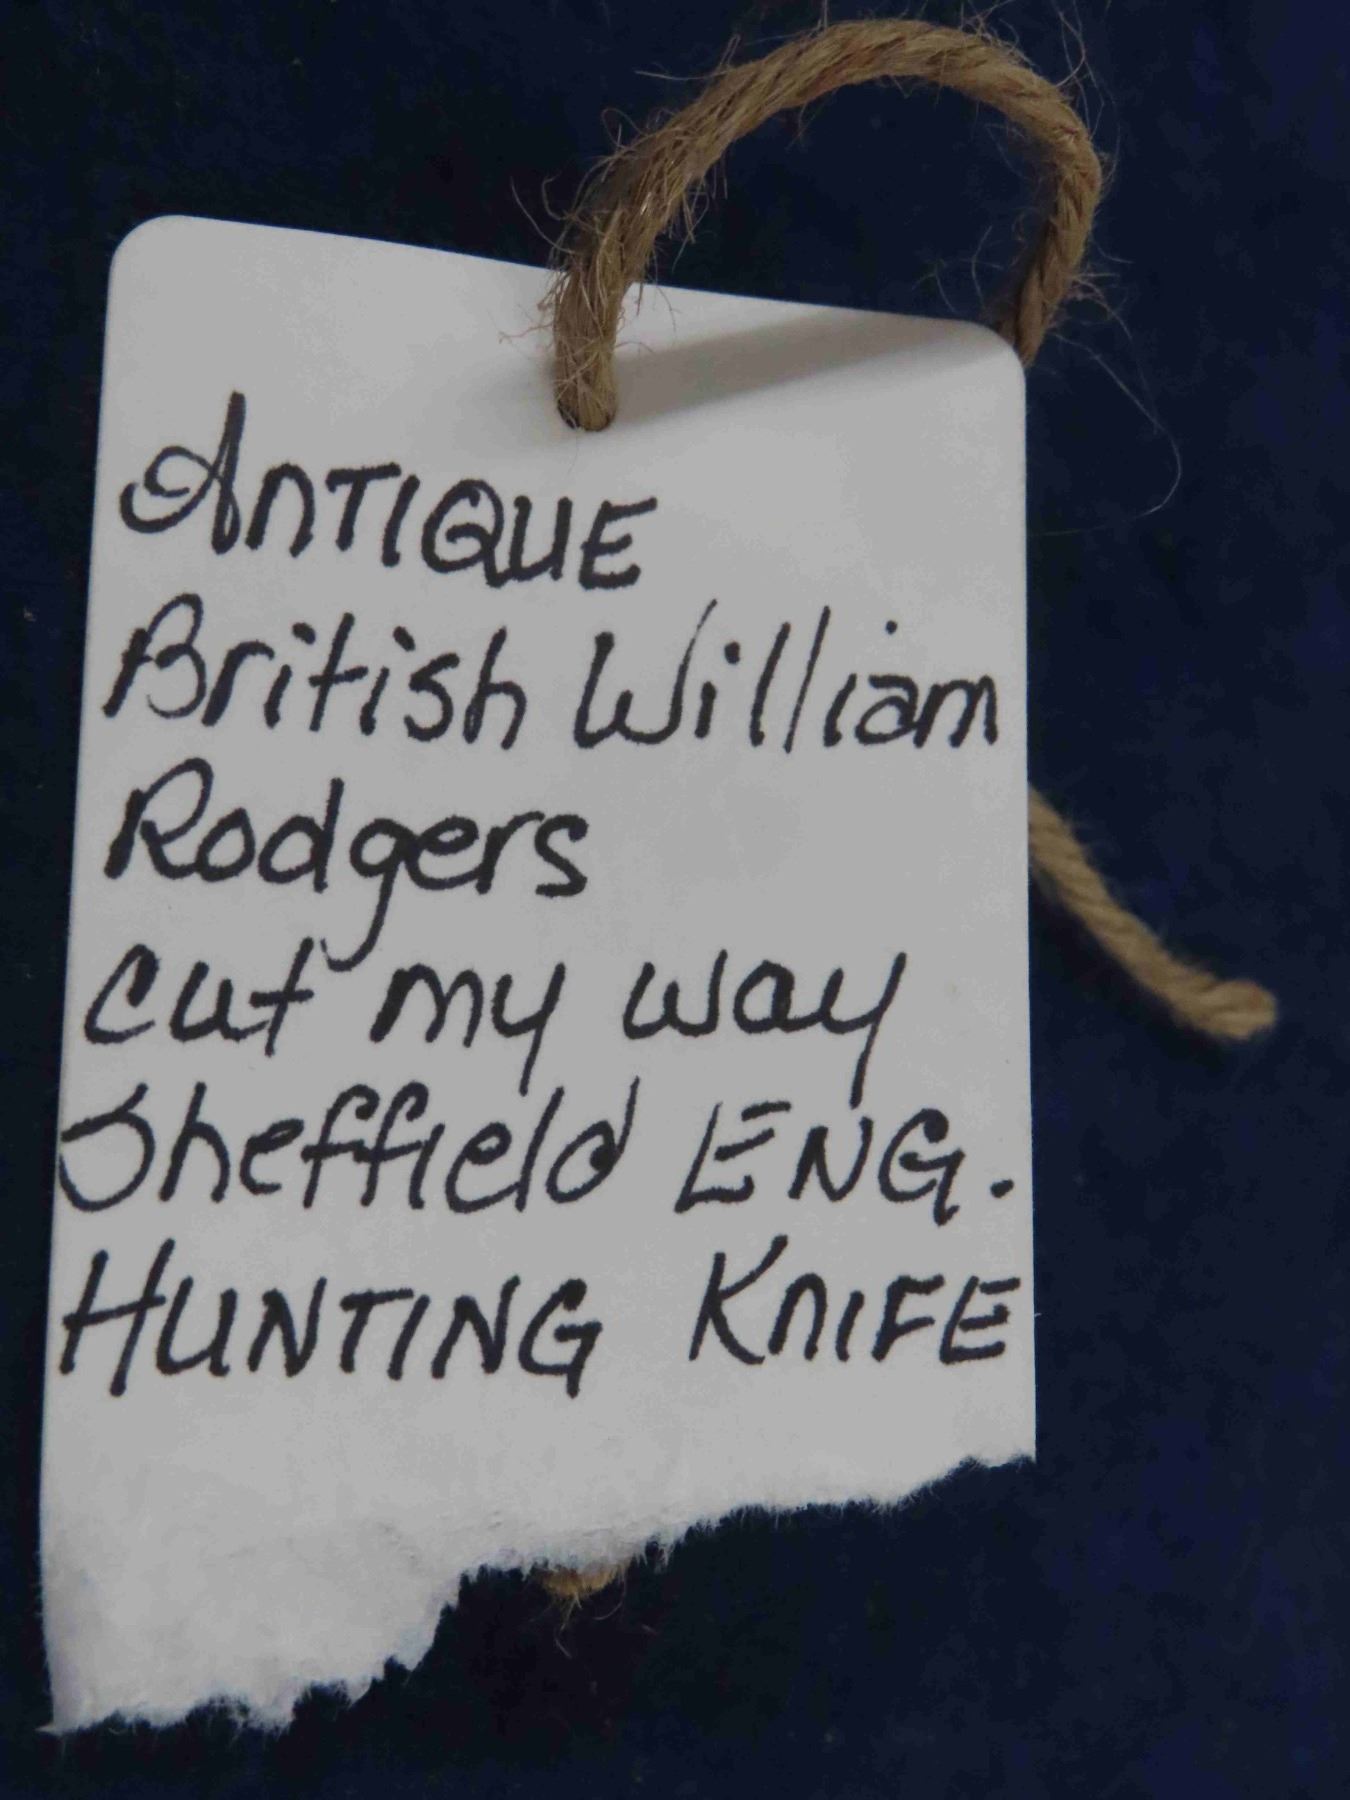 ANTIQUE
British William
Rodgers
cut my way
Sheffield ENG.
HUNTING KNIFE